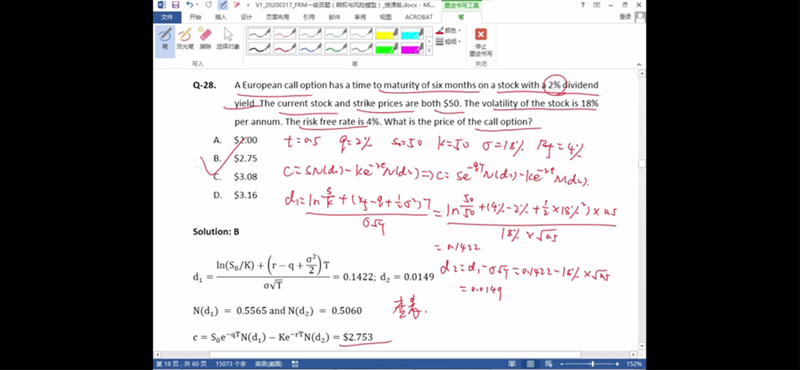 V1_20200317_FRM一级百题(期权与风险模型)_授课板.docx - Mi...
墨迹书写工具
登录
文件 开始 插入 设计 页面布局 引用 邮件 审阅 视图 ACROBAT 笔
笔 荧光笔 橡皮擦 选择对象
颜色
粗细
停止墨迹书写
写入 笔 关闭
Q-28. A European call option has a time to maturity of six months on a stock with a 2% dividend
yield. The current stock and strike prices are both $50. The volatility of the stock is 18%
per annum. The risk free rate is 4%. What is the price of the call option?
A. $2.00
t=0.5 q=2% S0=50 K=50 σ=18% Rf=4%
B. $2.75
C. $3.08
C=SN(d1)-Ke^{-rt}N(d2) ⇒ C=Se^{-qT}N(d1)-Ke^{-rt}N(d2).
D. $3.16
d1= \frac{ln\frac{S}{K}+(rf-q+\frac{1}{2}σ²)T}{σ√T} = \frac{ln\frac{50}{50}+(4%-2%+\frac{1}{2}×18%²)×0.5}{18%×√0.5}
=0.1422
Solution: B
d2=d1-σ√T=0.1422-18%×√0.5
=0.0149
d₁ = \frac{ln(S₀/K) + (r − q + \frac{σ²}{2})T}{σ√T} = 0.1422; d₂ = 0.0149
N(d₁) = 0.5565 and N(d₂) = 0.5060
查表.
c = S₀e^{−qT}N(d₁) − Ke^{−rT}N(d₂) = $2.753
第 18 页,共 60 页 15073 个字 英语(美国) 152%